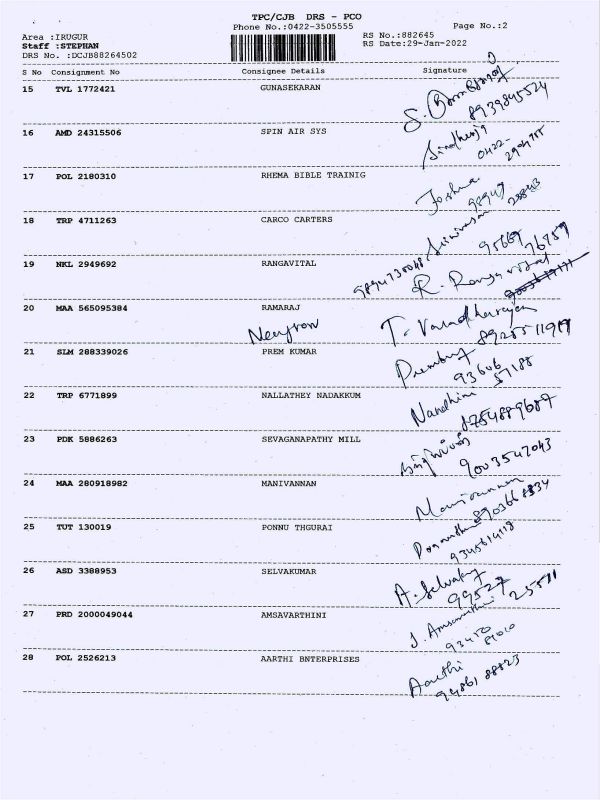 TPC/CJB DRS - PCO
Phone No.:0422-3505555
Page No.:2
Area :IRUGUR
RS No.:882645
Staff :STEPHAN
RS Date:29-Jan-2022
DRS No. :DCJB88264502
S No Consignment No Consignee Details Signature
15 TVL 1772421 GUNASEKARAN
8939845524
16 AMD 24315506 SPIN AIR SYS
0422-
17 POL 2180310 RHEMA BIBLE TRAINIG
Joshua
98947
18 TRP 4711263 CARCO CARTERS
Srinivasan
95669 76959
19 NKL 2949692 RANGAVITAL
R. Rangavittal
20 MAA 565095384 RAMARAJ
T. Varadharajan
21 SLM 288339026 PREM KUMAR
93606
57188
22 TRP 6771899 NALLATHEY NADAKKUM
Nandhini
8754889689
23 PDK 5886263 SEVAGANAPATHY MILL
9003547043
24 MAA 280918982 MANIVANNAN
Manivannan
25 TUT 130019 PONNU THGURAI
9345614118
26 ASD 3388953 SELVAKUMAR
99527 25511
27 PRD 2000049044 AMSAVARTHINI
J. Amsavarthini
93450
81010
28 POL 2526213 AARTHI BNTERPRISES
Aarthi
94861 88823